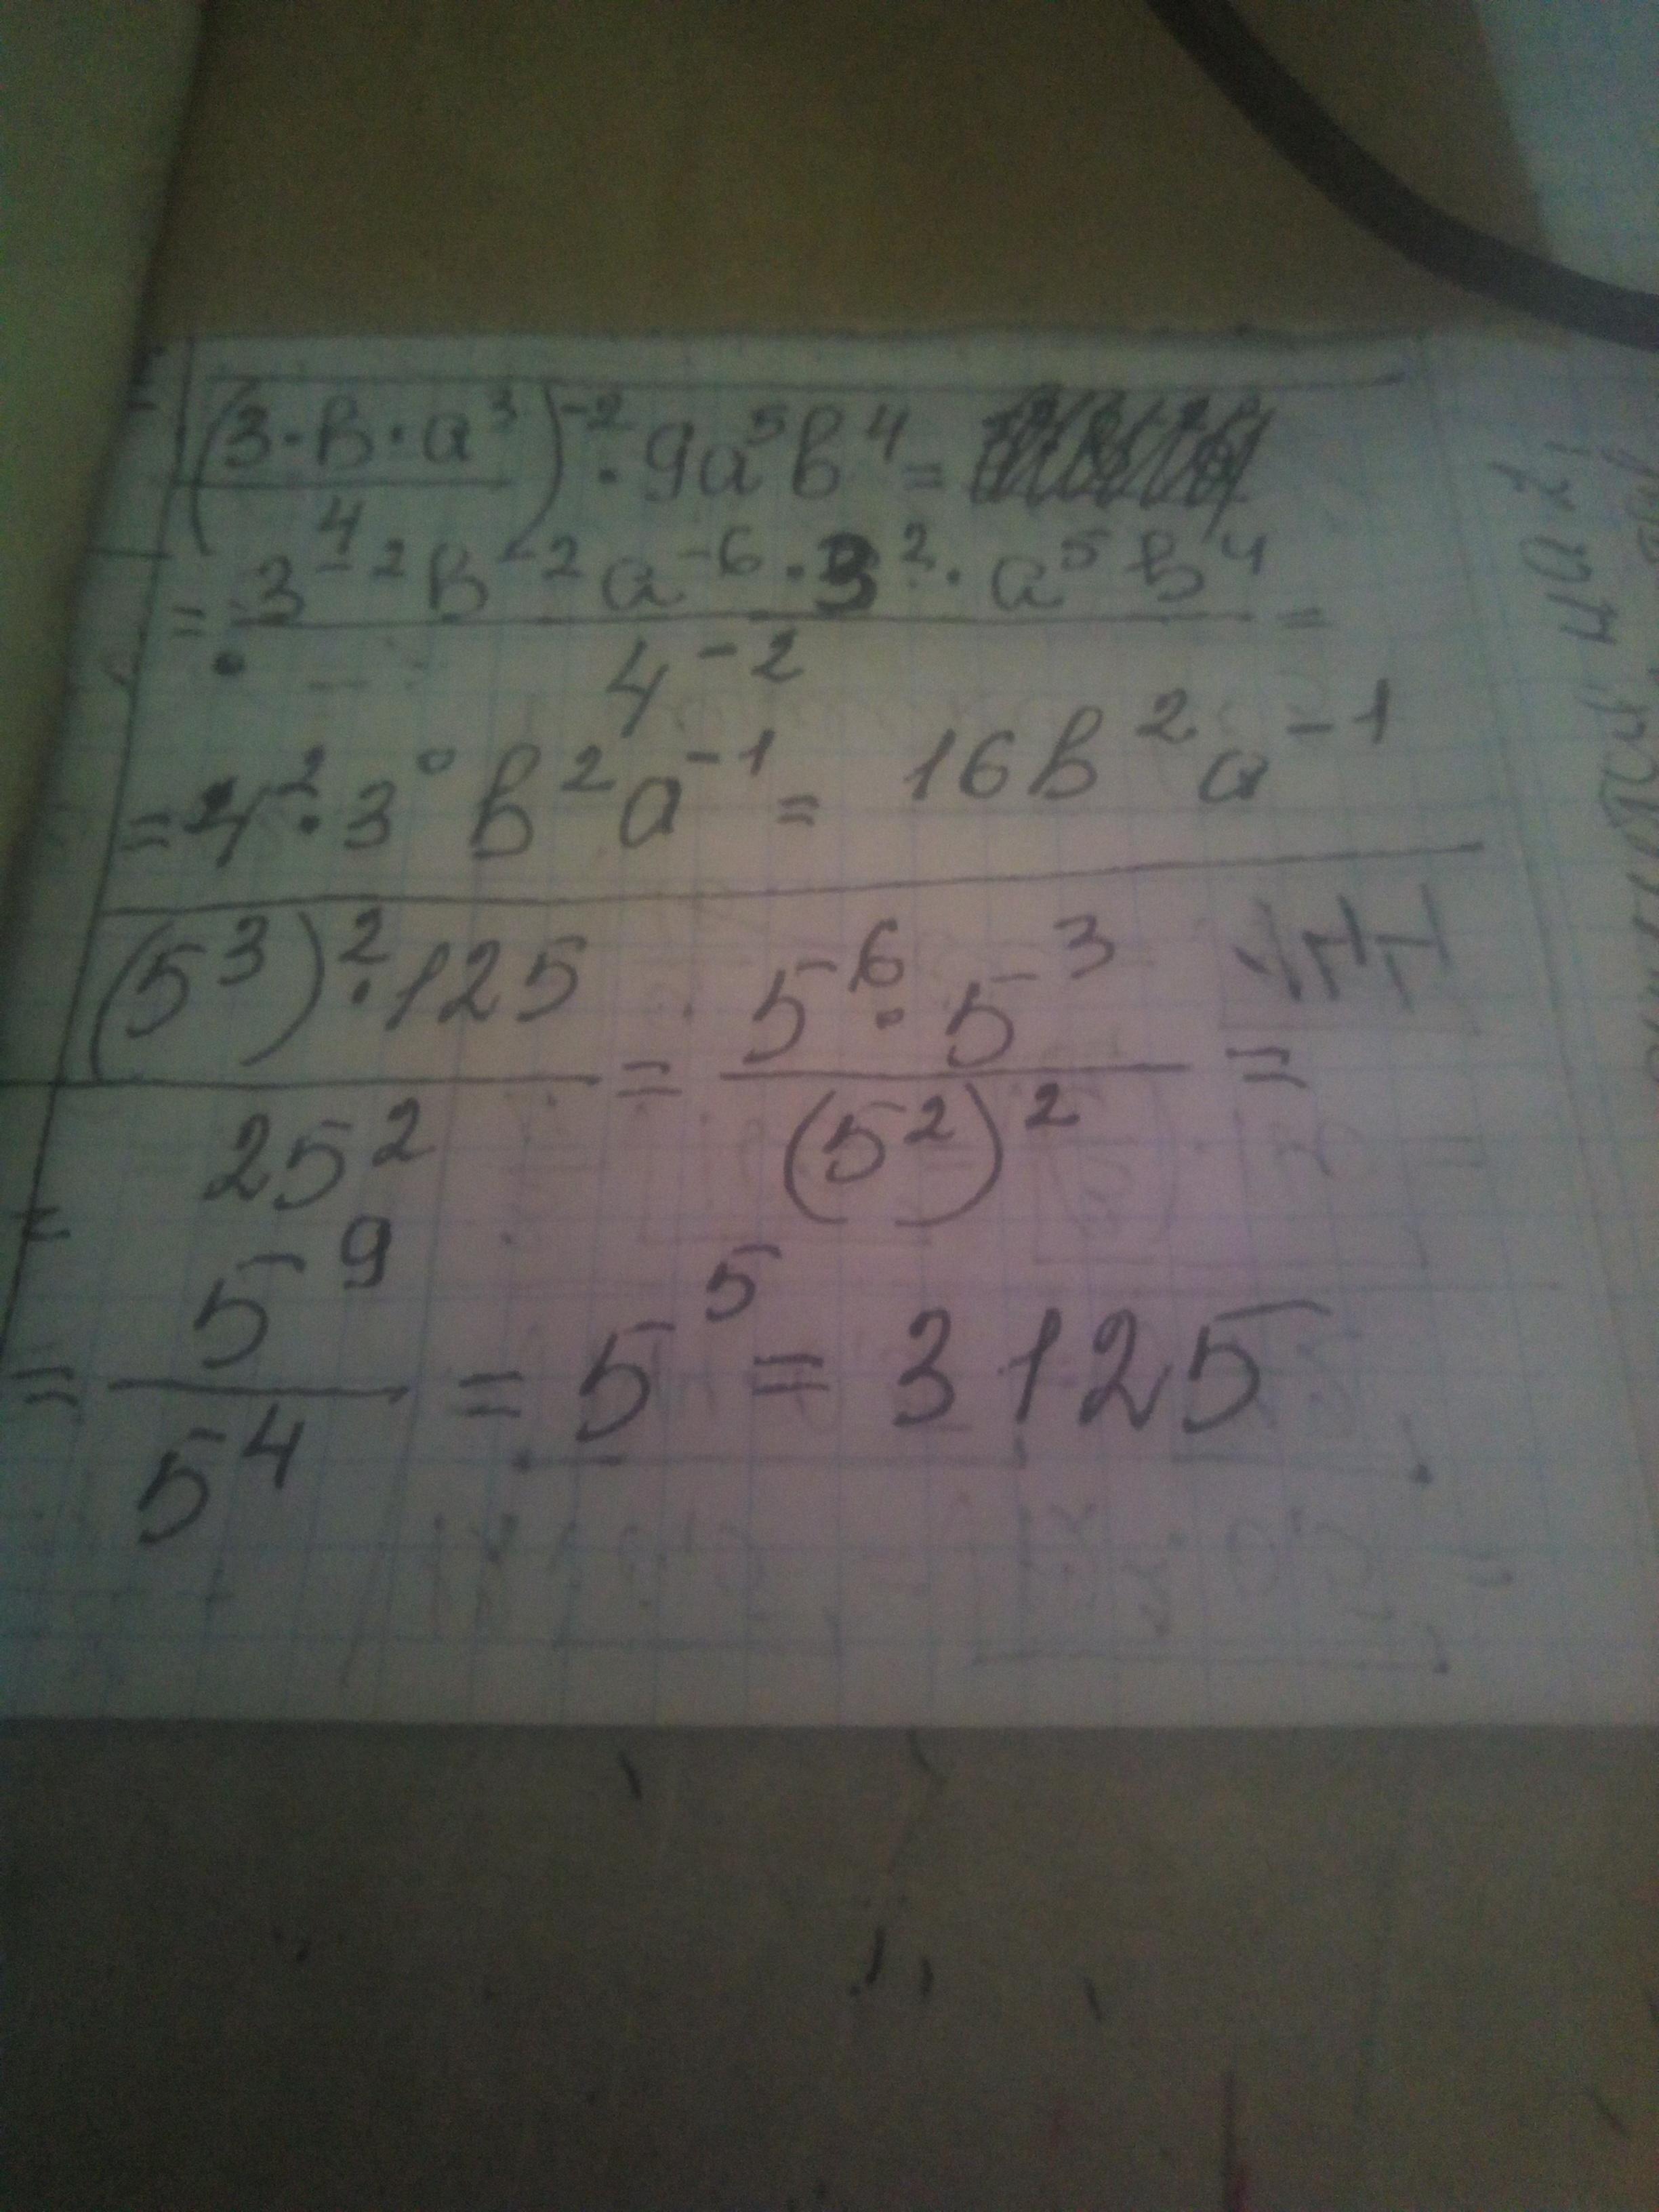 (3·в·a³/4)⁻²·9a⁵b⁴=
= 3⁻²в⁻²a⁻⁶·3²·a⁵b⁴/4⁻² =
=4²·3⁰b²a⁻¹= 16b²a⁻¹
(5³)²·125/25² = 5⁶·5³/(5²)² =
= 5⁹/5⁴ = 5⁵ = 3125